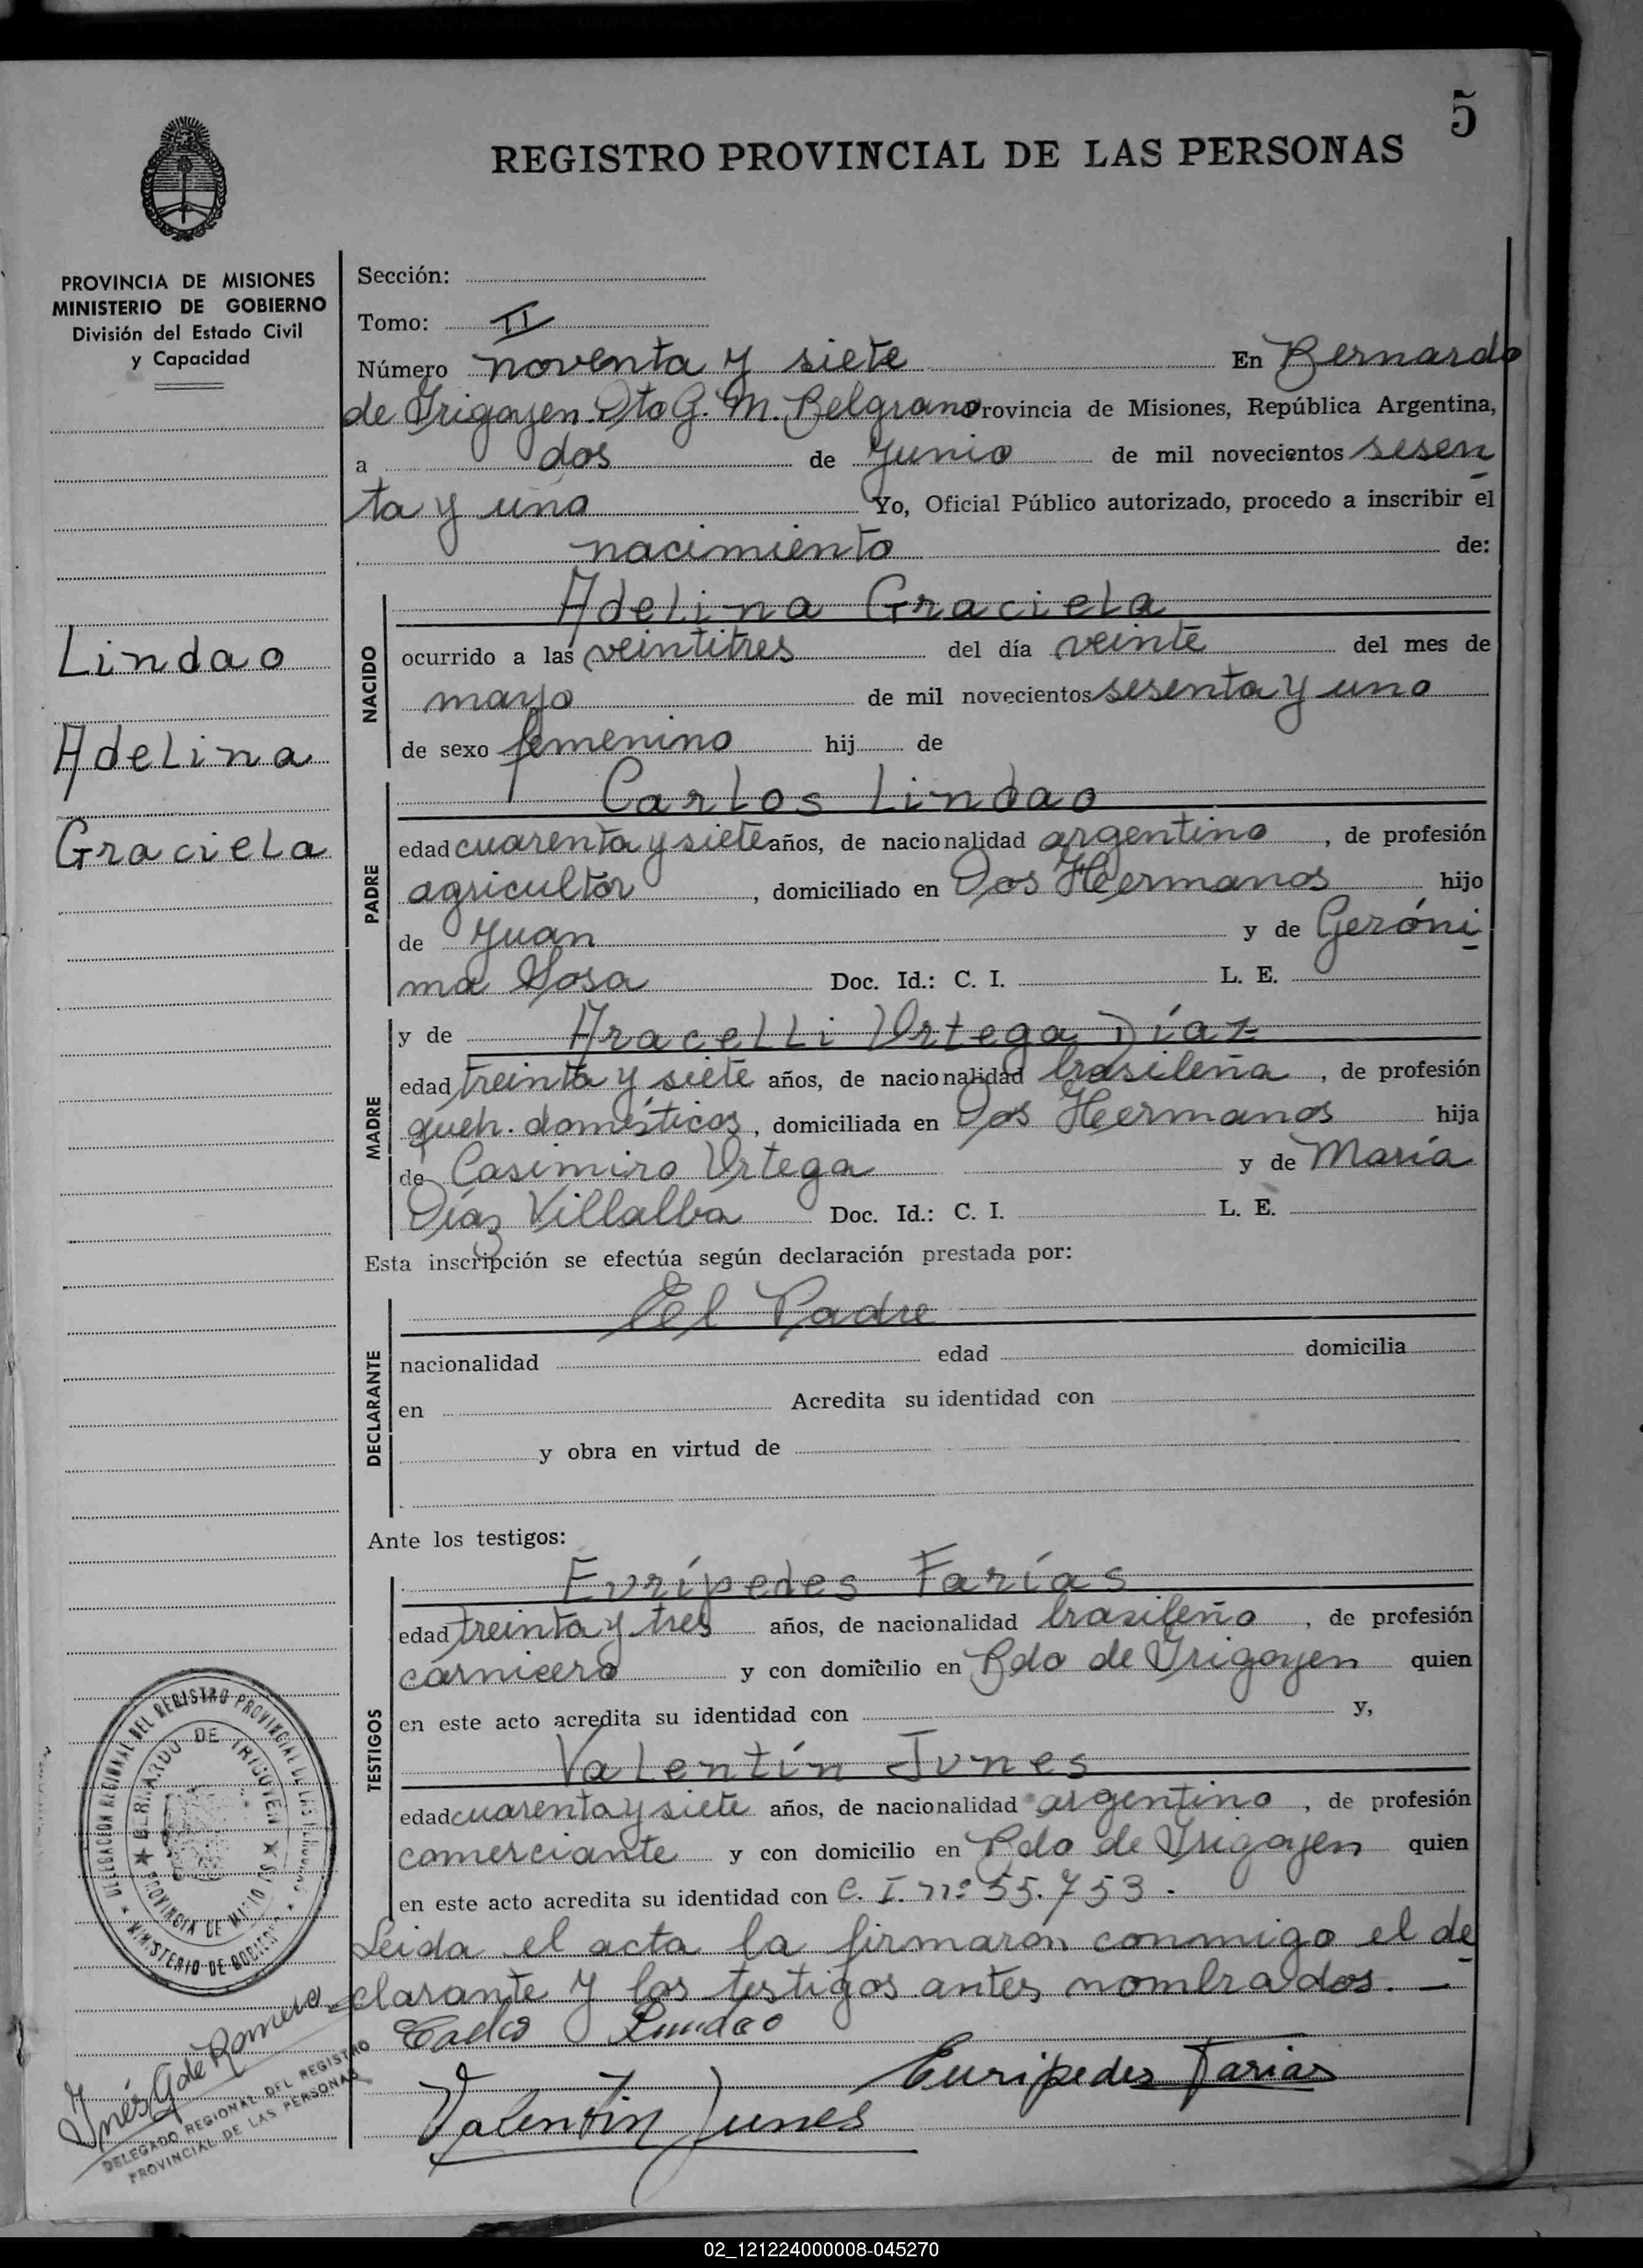 5
REGISTRO PROVINCIAL DE LAS PERSONAS
PROVINCIA DE MISIONES
MINISTERIO DE GOBIERNO
División del Estado Civil
y Capacidad
Lindao
Adelina
Graciela
Sección:
Tomo: II
Número noventa y siete En Bernardo
de Irigoyen. Dto G. M. Belgrano Provincia de Misiones, República Argentina,
a dos de Junio de mil novecientos sesen
ta y uno Yo, Oficial Público autorizado, procedo a inscribir el
nacimiento de:
NACIDO
Adelina Graciela
ocurrido a las veintitres del día veinte del mes de
mayo de mil novecientos sesenta y uno
de sexo femenino hij de
PADRE
Carlos Lindao
edad cuarenta y siete años, de nacionalidad argentino, de profesión
agricultor, domiciliado en Dos Hermanos hijo
de Juan y de Geróni
ma Sosa Doc. Id.: C. I. L. E.
MADRE
y de Aracelli Ortega Díaz
edad treinta y siete años, de nacionalidad brasileña, de profesión
queh. domésticos, domiciliada en Dos Hermanos hija
de Casimiro Ortega y de María
Díaz Villalba Doc. Id.: C. I. L. E.
Esta inscripción se efectúa según declaración prestada por:
DECLARANTE
El Padre
nacionalidad edad domicilia
en Acredita su identidad con
y obra en virtud de
Ante los testigos:
TESTIGOS
Eurípedes Farías
edad treinta y tres años, de nacionalidad brasileño, de profesión
carnicero y con domicilio en Bdo de Irigoyen quien
en este acto acredita su identidad con y,
Valentín Junes
edad cuarenta y siete años, de nacionalidad argentino, de profesión
comerciante y con domicilio en Bdo de Irigoyen quien
en este acto acredita su identidad con C. I. nº 55.753.
Leida el acta la firmaron conmigo el de
clarante y los testigos antes nombrados. —
Lindao
Euripedes Farias
Valentin Junes
DELEGACION REGIONAL DEL REGISTRO PROVINCIAL DE LAS PERSONAS
MINISTERIO DE GOBIERNO
BERNARDO DE IRIGOYEN
PROVINCIA DE MISIONES
Inés G de Romero
DELEGADO REGIONAL DEL REGISTRO
PROVINCIAL DE LAS PERSONAS
02_121224000008-045270